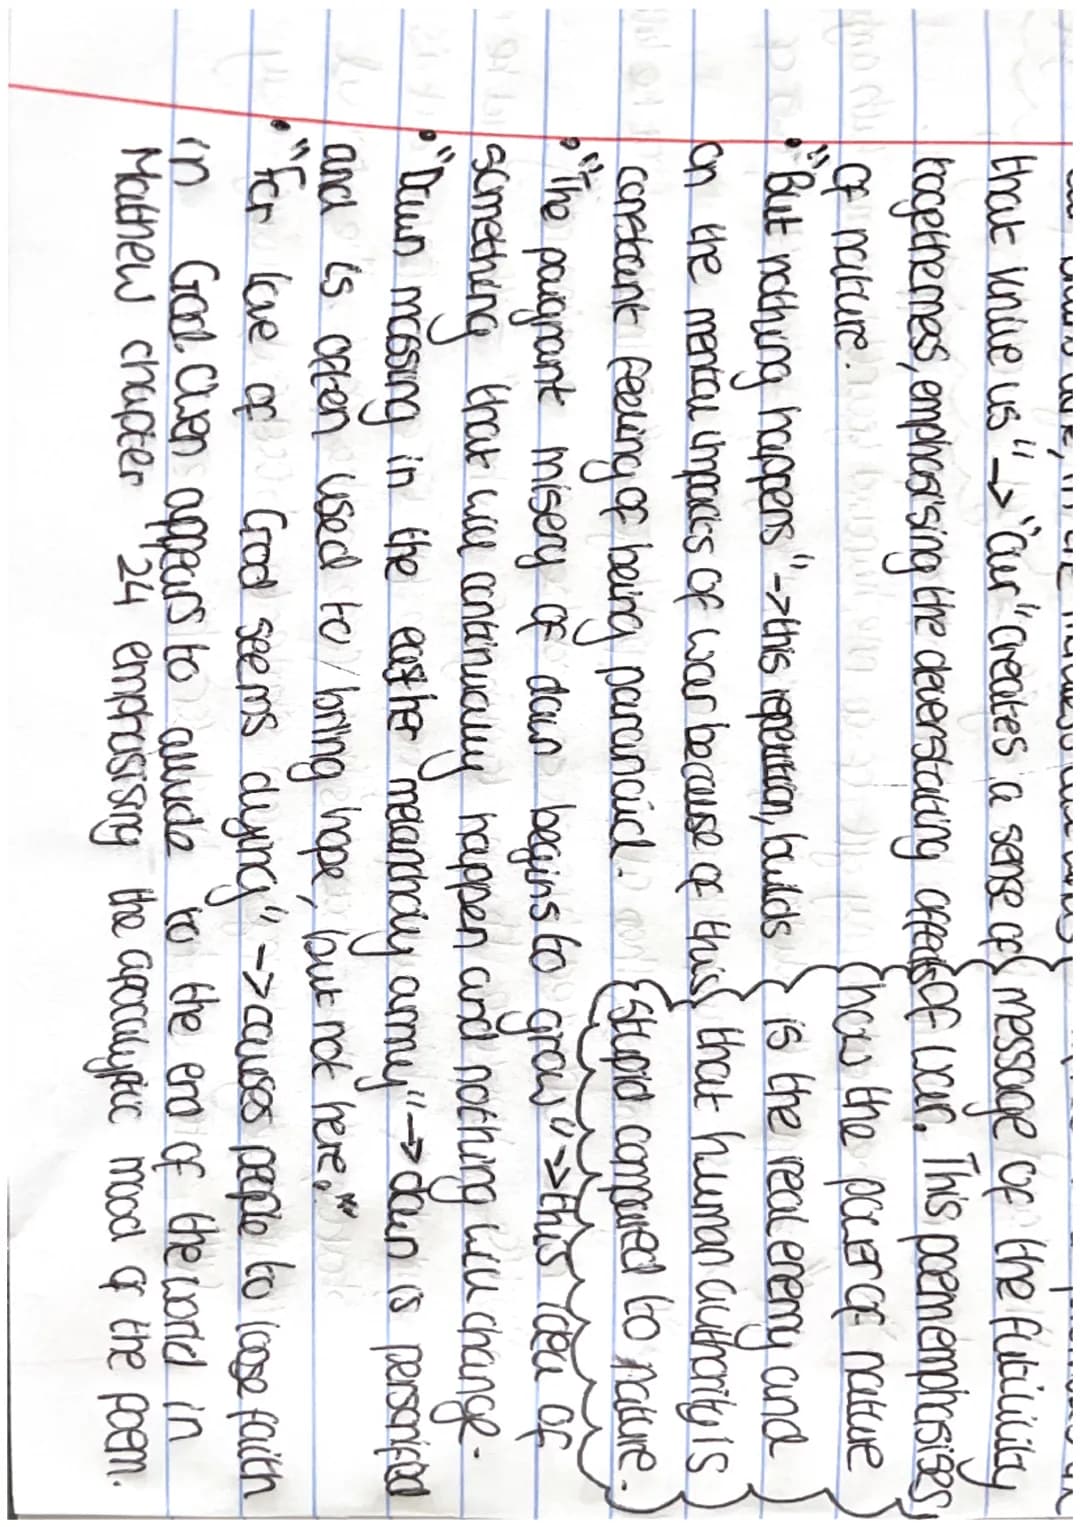 that knive us" -> "our" creates a sense of
togetherness, emphasising the deverstating affects
of nature.
• "But nothing happens" -> this repetition, builds
on the mental impacts of war because of this
constant feeling of being paranoid.
message of the futility
of war. This poem emphasises
how the power of nature
is the real enemy and
that human authority is
stupid compared to nature.
• "The poignant misery of dawn begins to grow" -> this idea of
something that will continually happen and nothing will change.
• "Dawn massing in the east her melancholy army" -> dawn is personified
and is often used to bring hope, but not here."
• "For love of God seems dying" -> causes people to loose faith
in God. Owen appears to allude to the end of the world in
Matthew chapter 24 emphasising the apocalyptic mood of the poem.